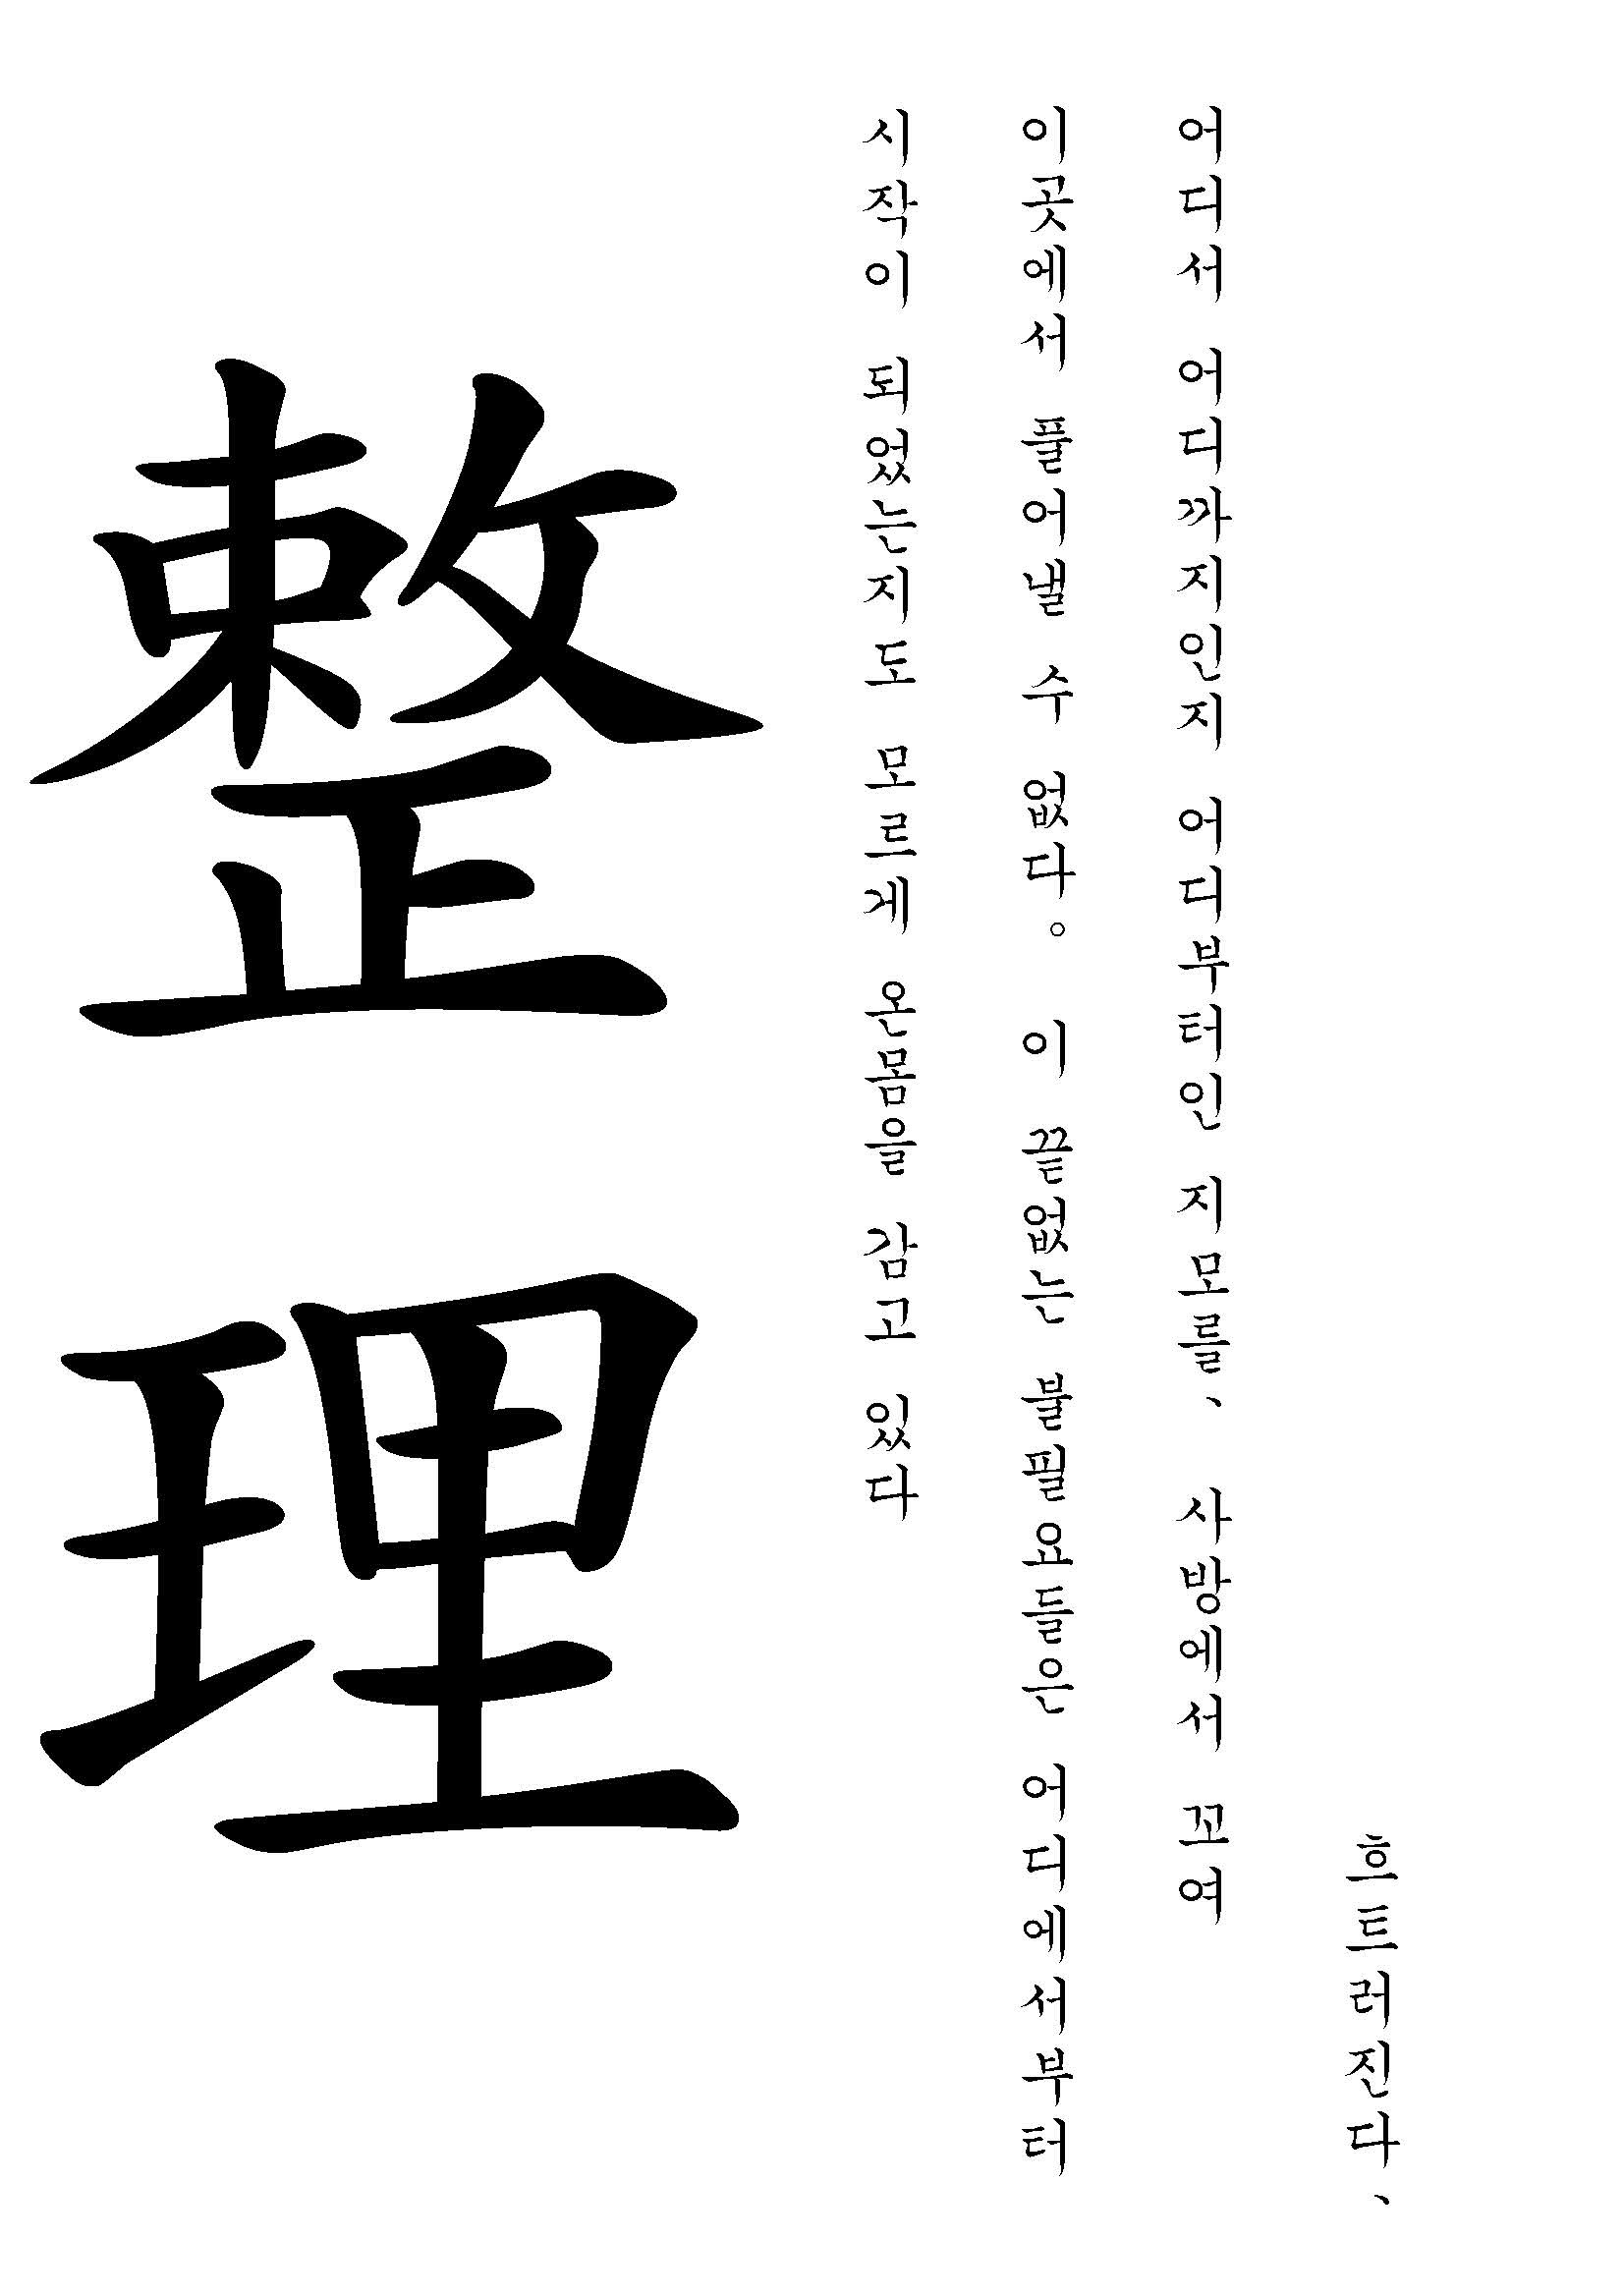 흐트러진다、
어디서 어디까지인지 어디부터인 지모를、 사방에서 꼬여
이곳에서 풀어낼 수 없다。 이 끝없는 불필요들은 어디에서부터
시작이 되었는지도 모르게 온몸을 감고 있다
整理